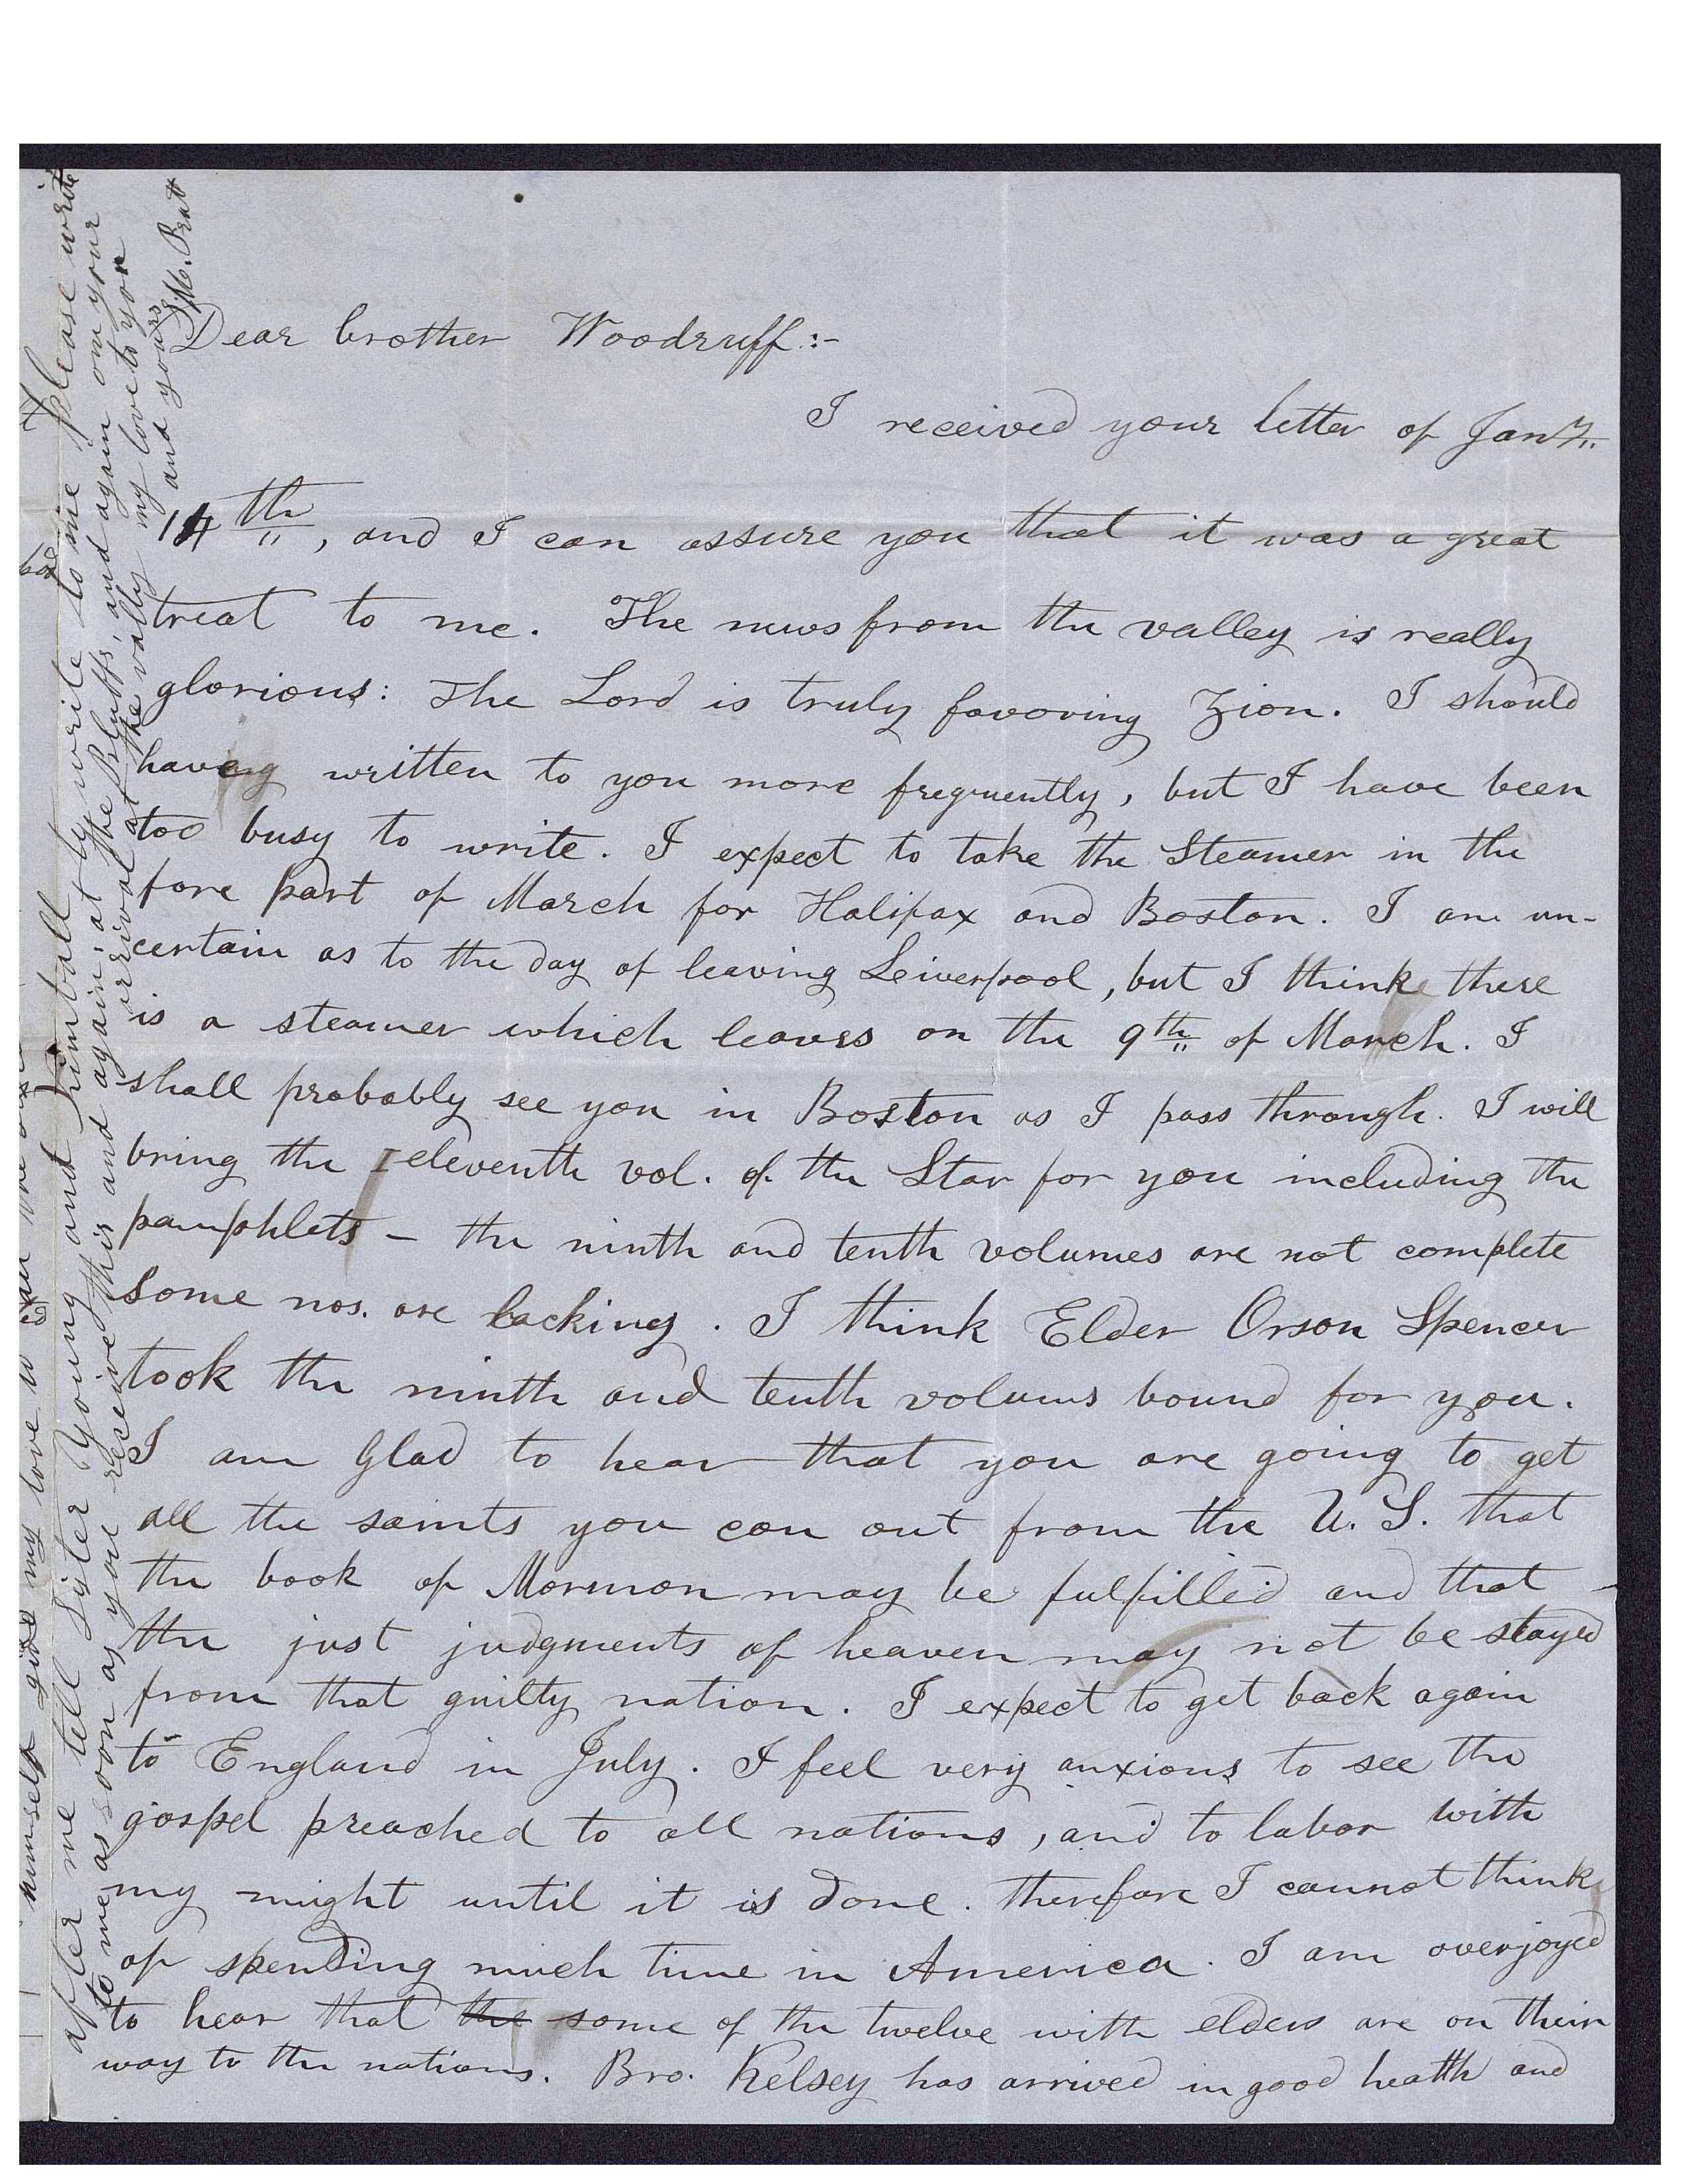 Dear brother Woodruff:-
I received your letter of Jany.
14th, and I can assure you that it was a great
treat to me. The news from the valley is really
glorious: The Lord is truly favoring Zion. I should
having written to you more frequently, but I have been
too busy to write. I expect to take the Steamer in the
fore part of March for Halifax and Boston. I am un-
certain as to the day of leaving Leiverpool, but I think there
is a steamer which leaves on the 9th of March. I
shall probably see you in Boston as I pass through. I will
bring the eleventh vol. of the Star for you including the
pamphlets - the ninth and tenth volumes are not complete
some nos. are lacking. I think Elder Orson Spencer
took the ninth and tenth volums bound for you.
I am Glad to hear that you are going to get
all the saints you can out from the U. S. that
the book of Mormon may be fulfilled and that
the just judgments of heaven may not be stayed
from that guilty nation. I expect to get back again
to England in July. I feel very anxious to see the
gospel preached to all nations, and to labor with
my might until it is done. therefore I cannot think
of spending much time in America. I am overjoyed
to hear that the some of the twelve with elders are on their
way to the nations. Bro. Kelsey has arrived in good health and
himself give my love to all
after me tell Sister Young and Kimball by write to me please write
to me as soon as you receive this and again, at the Bluffs, and again on your
arrival at the vally my love to you
and yours
S. M. Pratt